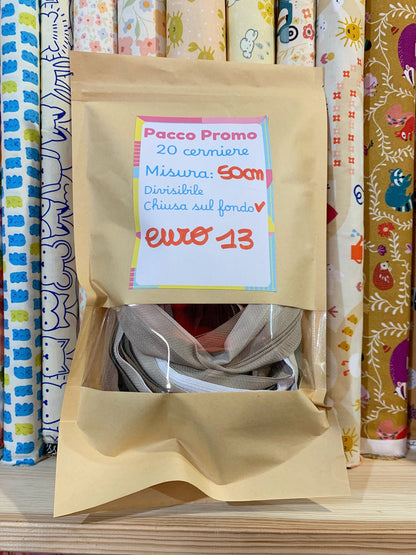 Pacco Promo
20 cerniere
Misura: 50cm
Divisibile
Chiusa sul fondo ✓
euro 13